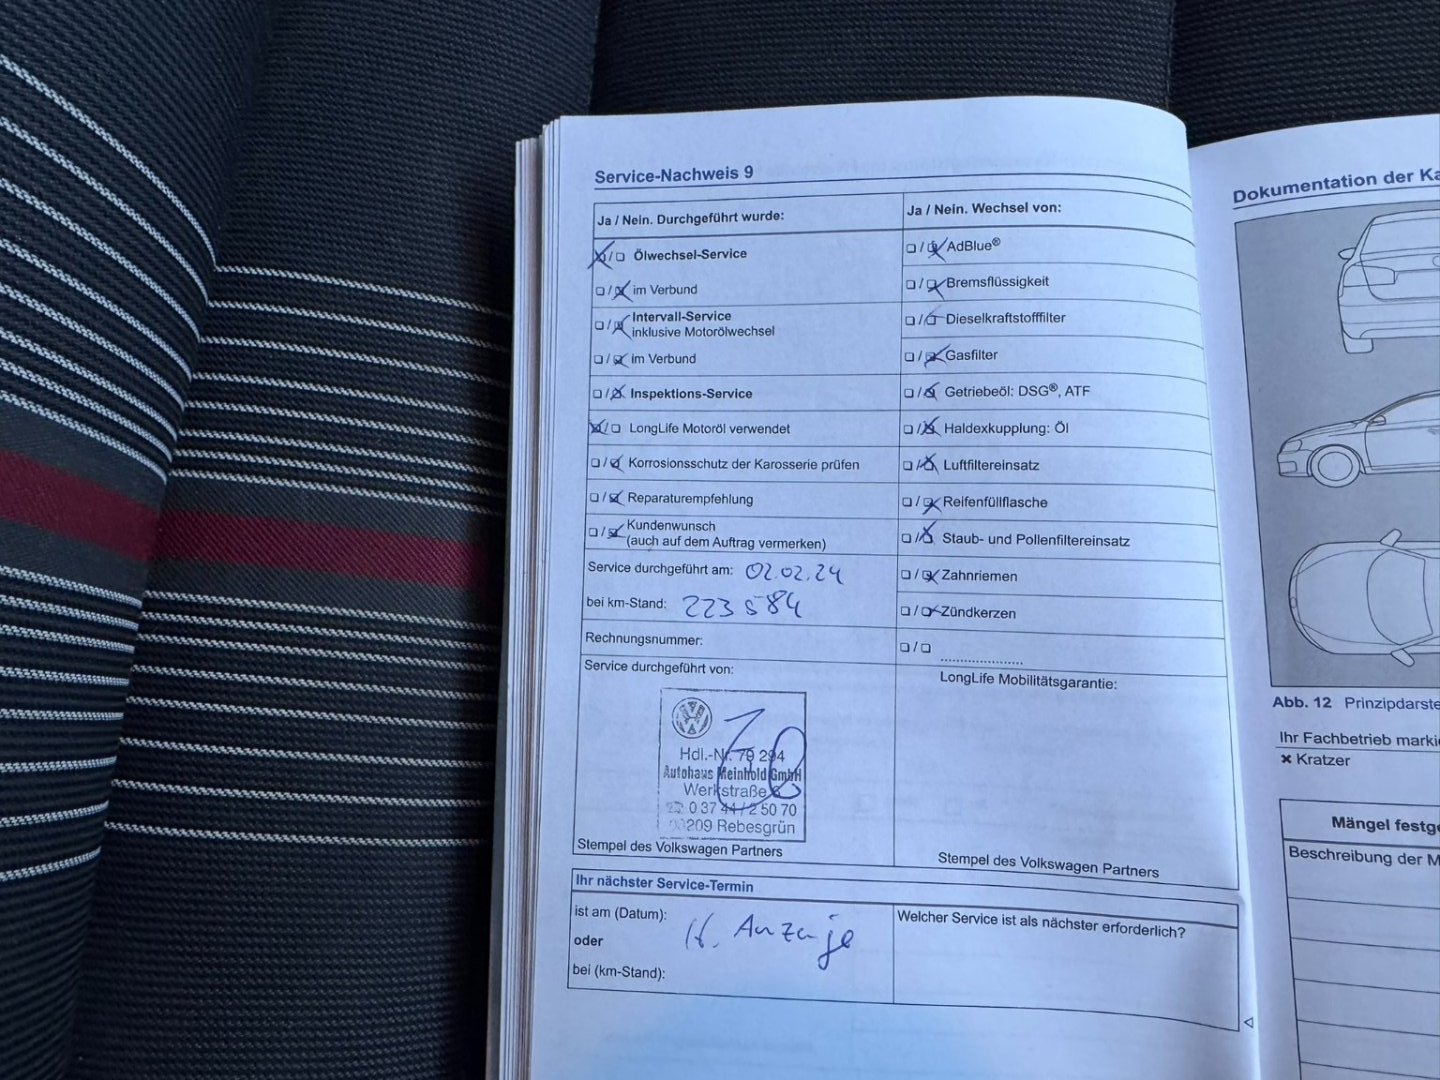 Service-Nachweis 9
Ja / Nein. Durchgeführt wurde:
Ölwechsel-Service
im Verbund
Intervall-Service
inklusive Motorölwechsel
im Verbund
Inspektions-Service
LongLife Motoröl verwendet
Korrosionsschutz der Karosserie prüfen
Reparaturempfehlung
Kundenwunsch
(auch auf dem Auftrag vermerken)
Service durchgeführt am: 02.02.24
bei km-Stand: 223584
Rechnungsnummer:
Service durchgeführt von:
Hdl.-Nr. 79 294
Autohaus Meinhold GmbH
Werkstraße
0 37 44 / 2 50 70
209 Rebesgrün
Stempel des Volkswagen Partners
Ja / Nein. Wechsel von:
AdBlue®
Bremsflüssigkeit
Dieselkraftstofffilter
Gasfilter
Getriebeöl: DSG®, ATF
Haldexkupplung: Öl
Luftfiltereinsatz
Reifenfüllflasche
Staub- und Pollenfiltereinsatz
Zahnriemen
Zündkerzen
LongLife Mobilitätsgarantie:
Stempel des Volkswagen Partners
Ihr nächster Service-Termin
ist am (Datum):
oder
bei (km-Stand):
Anzeige
Welcher Service ist als nächster erforderlich?
Dokumentation der
Abb. 12
Ihr Fachbetrieb
Kratzer
Mängel
Beschreibung der